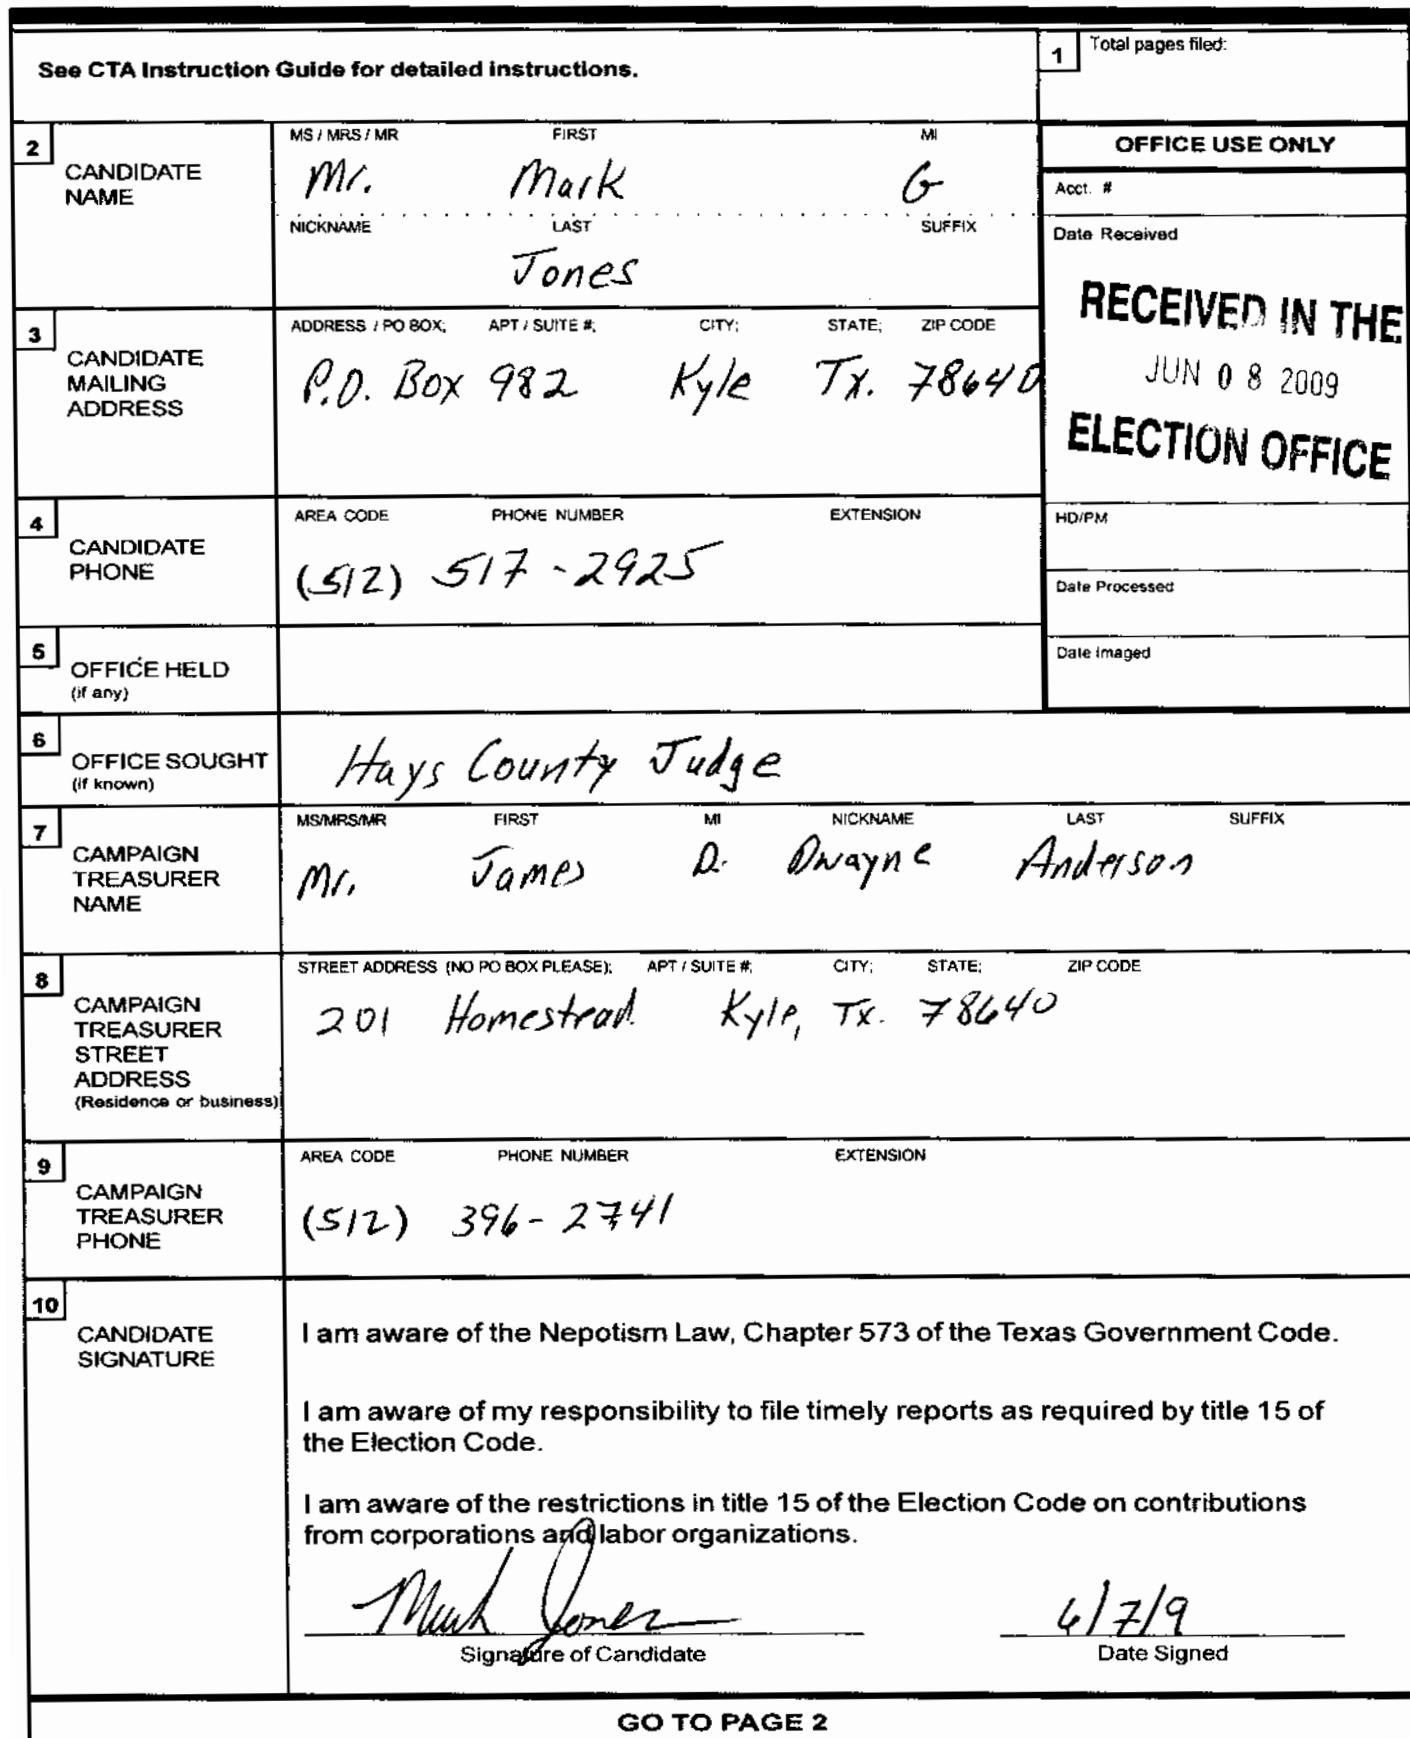 See CTA Instruction Guide for detailed instructions.
1 Total pages filed:
2 CANDIDATE NAME
MS / MRS / MR FIRST MI
Mr. Mark G
NICKNAME LAST SUFFIX
Jones
OFFICE USE ONLY
Acct. #
Date Received
RECEIVED IN THE
JUN 08 2009
ELECTION OFFICE
HD/PM
Date Processed
Date Imaged
3 CANDIDATE MAILING ADDRESS
ADDRESS / PO BOX; APT / SUITE #; CITY; STATE; ZIP CODE
P.O. Box 982 Kyle Tx. 78640
4 CANDIDATE PHONE
AREA CODE PHONE NUMBER EXTENSION
(512) 517-2925
5 OFFICE HELD
(if any)
6 OFFICE SOUGHT
(if known)
Hays County Judge
7 CAMPAIGN TREASURER NAME
MS/MRS/MR FIRST MI NICKNAME LAST SUFFIX
Mr. James D. Dwayne Anderson
8 CAMPAIGN TREASURER STREET ADDRESS
(Residence or business)
STREET ADDRESS (NO PO BOX PLEASE); APT / SUITE #; CITY; STATE; ZIP CODE
201 Homestead. Kyle, Tx. 78640
9 CAMPAIGN TREASURER PHONE
AREA CODE PHONE NUMBER EXTENSION
(512) 396-2741
10 CANDIDATE SIGNATURE
I am aware of the Nepotism Law, Chapter 573 of the Texas Government Code.
I am aware of my responsibility to file timely reports as required by title 15 of
the Election Code.
I am aware of the restrictions in title 15 of the Election Code on contributions
from corporations and labor organizations.
Mark Jones 6/7/9
Signature of Candidate Date Signed
GO TO PAGE 2